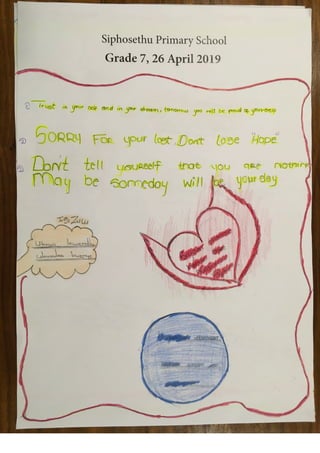 Siphosethu Primary School
Grade 7, 26 April 2019
① Trust in your self and in your dream, tomorrow you will be proud of yourself
② SORRY For your lost Dont lose "Hope"
③ Don't tell yourself that you are nothing
May be someday will be your day
Isi Zulu